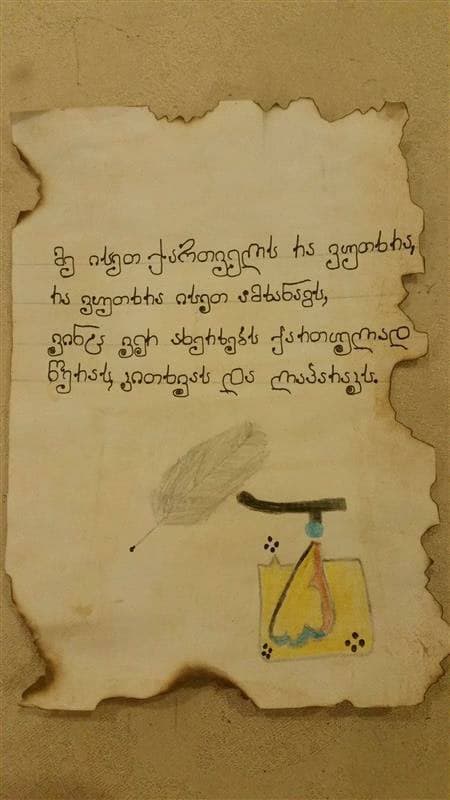 მე ისეთ ქართველს რა ვუთხრა,
რა ვუთხრა ისეთ ამხანაგს,
ვინცა ვერ ახერხებს ქართულად
წერას, კითხვას და ლაპარაკს.